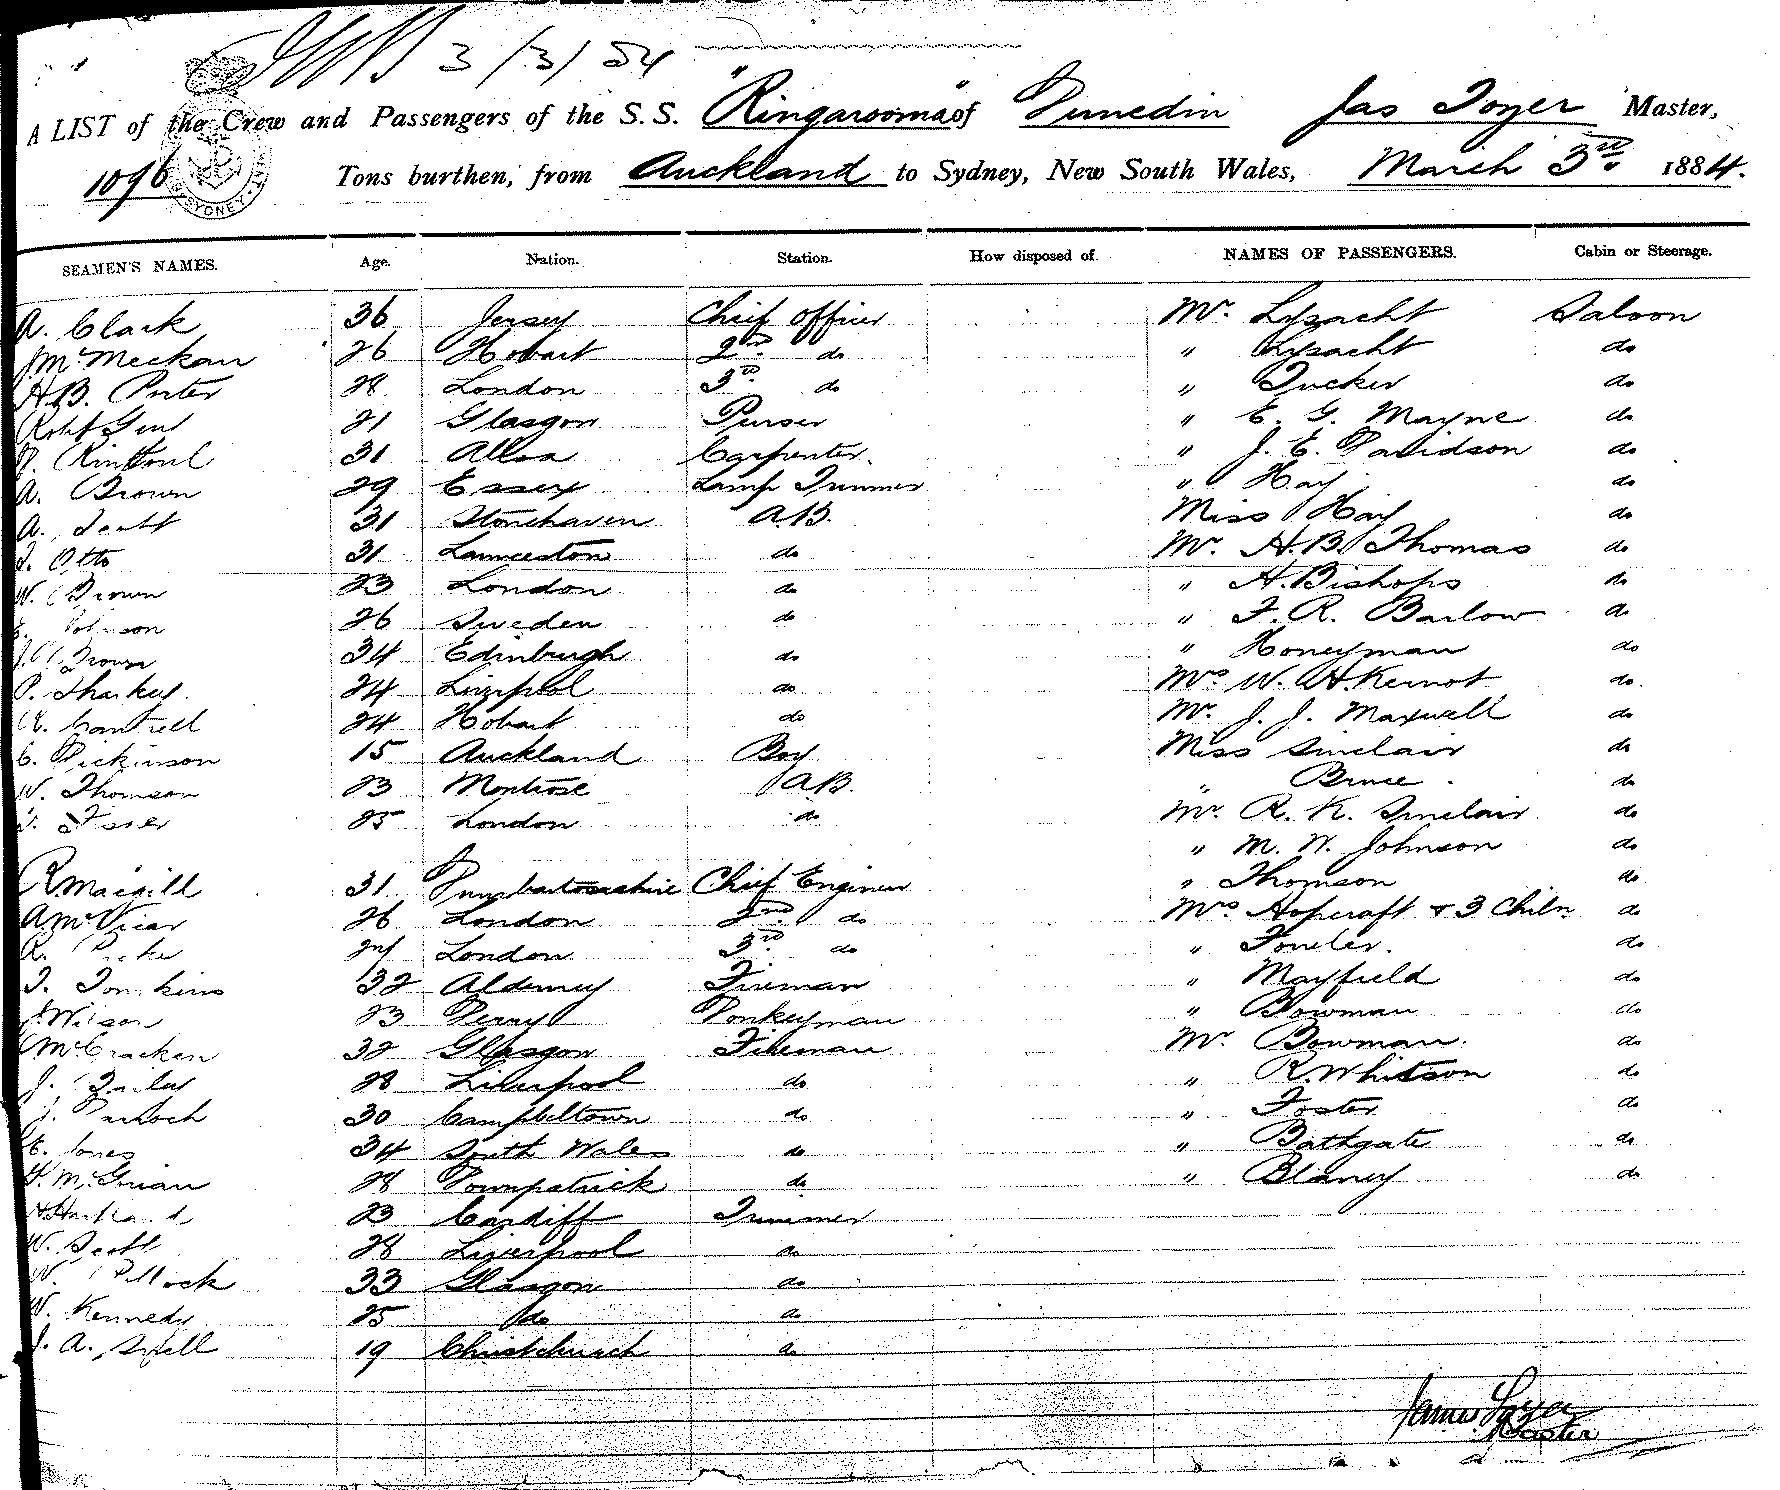 3/3/84
A LIST of the Crew and Passengers of the S.S. "Ringarooma" of Dunedin Jas Toyer Master,
1096 Tons burthen, from Auckland to Sydney, New South Wales, March 3rd 1884.
SEAMEN'S NAMES. Age. Nation. Station. How disposed of NAMES OF PASSENGERS. Cabin or Steerage.
A. Clark 36 Jersey Chief Officer Mr. Lysacht Saloon
J. McMeckan 26 Hobart 2nd do " Lysacht do
H.B. Porter 28 London 3rd do " Tucker do
Robt 21 Glasgow Purser " E. G. Mayne do
Rintoul 31 Alloa Carpenter. " J. E. Davidson do
A. Brown 29 Essex Lamp Trimmer " Hay do
A. Scott 31 Stonehaven A.B. Miss Hay do
Otto 31 Launceston do Mr. H.B. Thomas do
W. Brown 23 London do " H. Bishops do
Johnson 26 Sweden do " F. R. Barlow do
34 Edinburgh do " Honeyman do
P. Sharkey. 24 Liverpool do Mrs W. H. Kernot do
Cantrell 24 Hobart do Mr. J. J. Maxwell do
C. Dickinson 15 Auckland Boy Miss Sinclair do
W. Thomson 23 Montrose A.B. " Bruce. do
25 London do Mr. R. K. Sinclair do
" M. W. Johnson do
R Macgill 31 Dumbartonshire Chief Engineer " Thomson do
A McVicar 26 London 2nd do Mrs Hopcraft + 3 Chiln do
24 London 3rd do " Fowler. do
Tomkins 32 Alderney Fireman " Mayfield do
Wilson 23 Derry Donkeyman " Bowman do
McCracken 32 Glasgow Fireman Mr. Bowman. do
J. Bailey 28 Liverpool do " R. Whitson do
30 Campbeltown do " Foster do
Jones 34 South Wales do " Bathgate do
28 Downpatrick do " Blaney do
23 Cardiff Trimmer
W. Scott 28 Liverpool do
W. Pollock 33 Glasgow do
W. Kennedy 25 do do
J. A. Snell 19 Christchurch do
James Toyer
Master